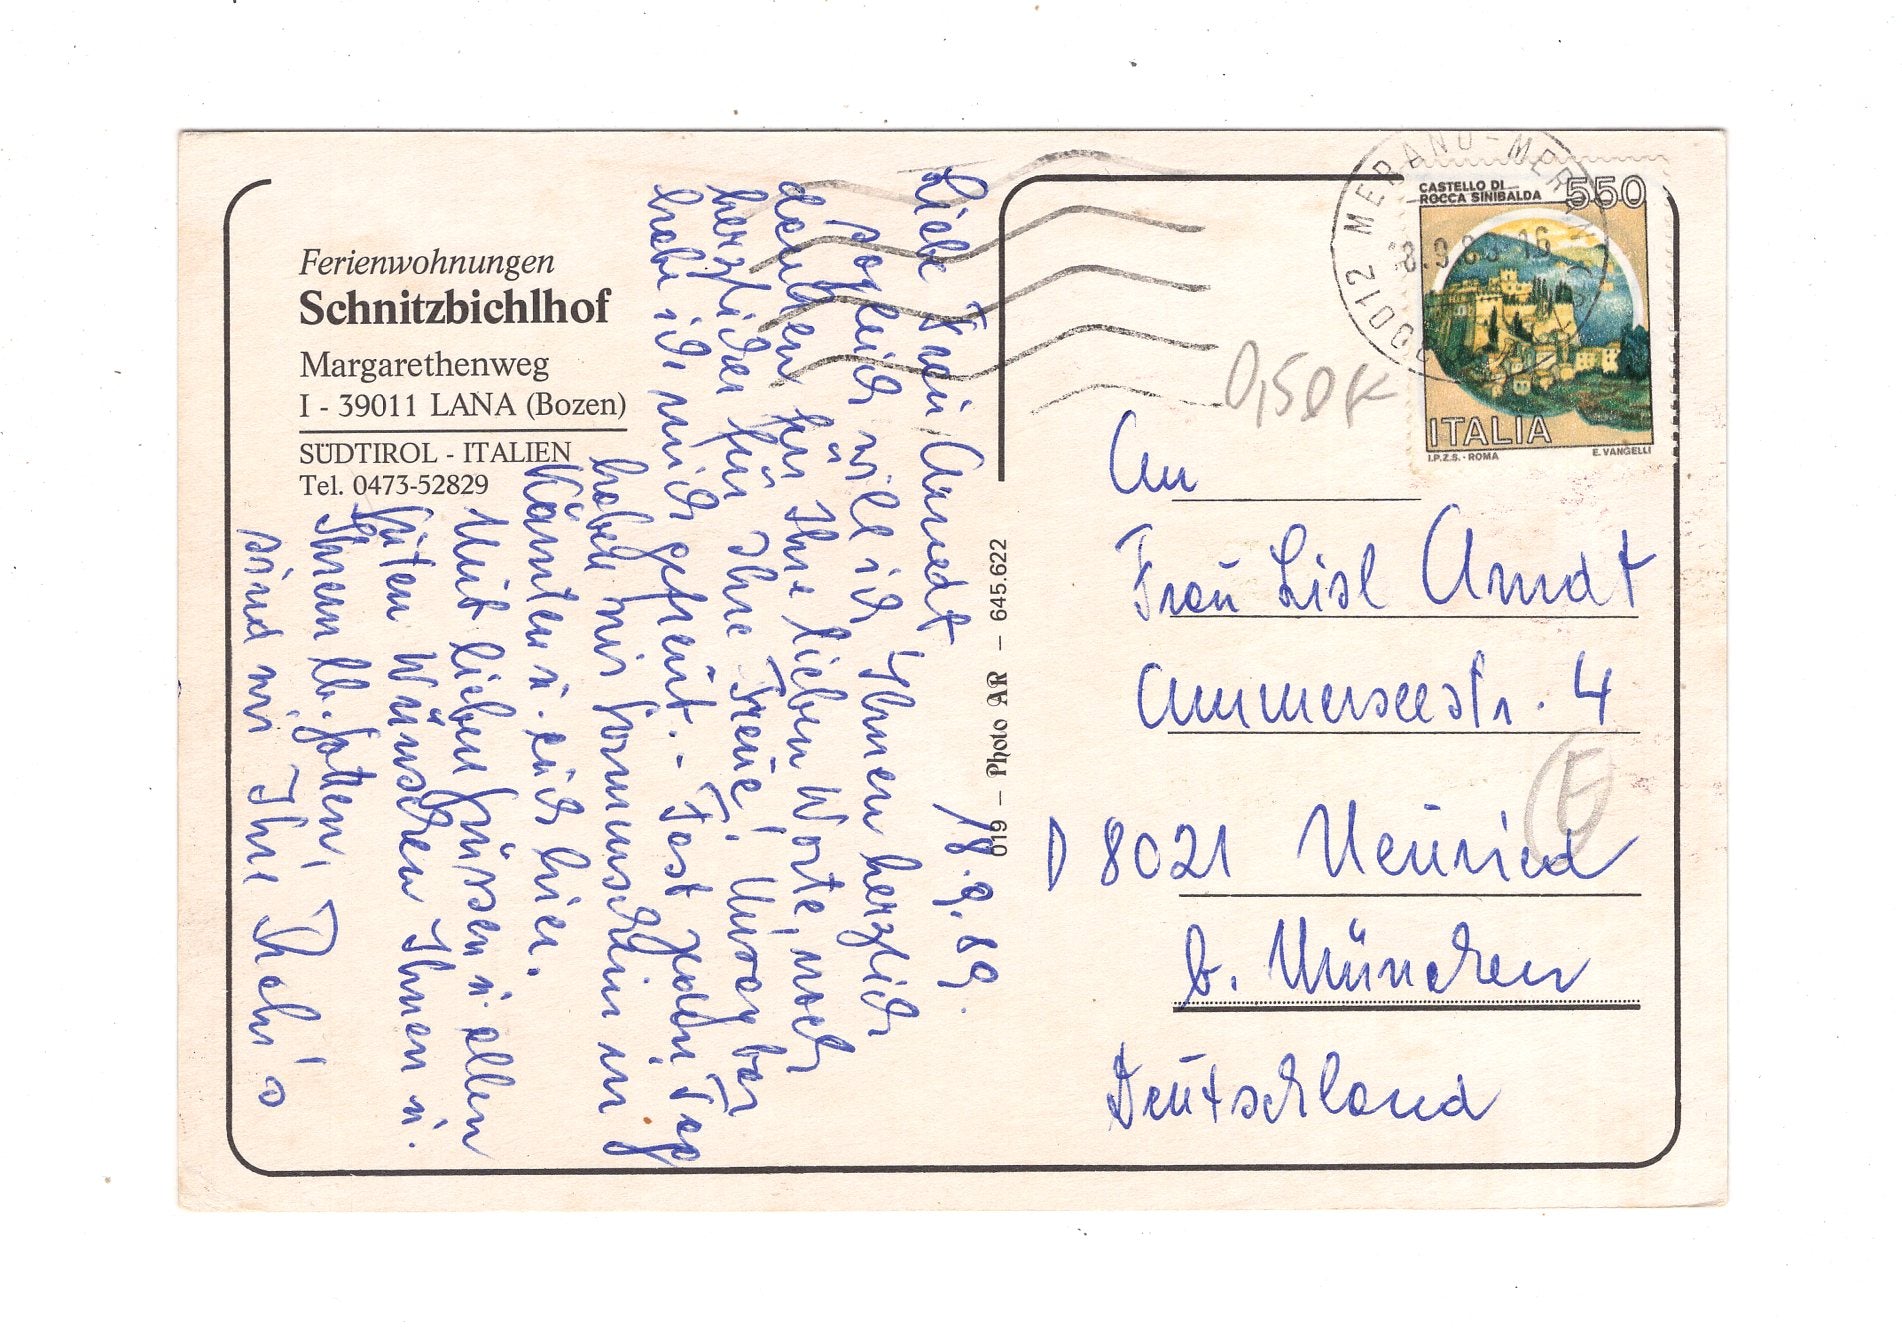 Ferienwohnungen
Schnitzbichlhof
Margarethenweg
I - 39011 LANA (Bozen)
SÜDTIROL - ITALIEN
Tel. 0473-52829
18.9.89.
Liebe Frau Arndt,
sogleich will ich Ihnen herzlich
danken für Ihre lieben Worte, noch
herzlicher für Ihre Treue!
habe ich mich gefreut. - Fast jeden Tag
haben wir Sonnenschein in
Kärnten u. auch hier.
Mit lieben Grüssen u. allen
guten Wünschen Ihnen u.
Ihrem lb. Gatten,
sind wir Ihre
019 - Photo AR - 645.622
CASTELLO DI
ROCCA SINIBALDA
550
ITALIA
I.P.Z.S. - ROMA
E. VANGELLI
39012 MERANO - MERAN
0,50 €
An
Frau Lisl Arndt
Ammerseestr. 4
D 8021 Neuried
b. München
Deutschland